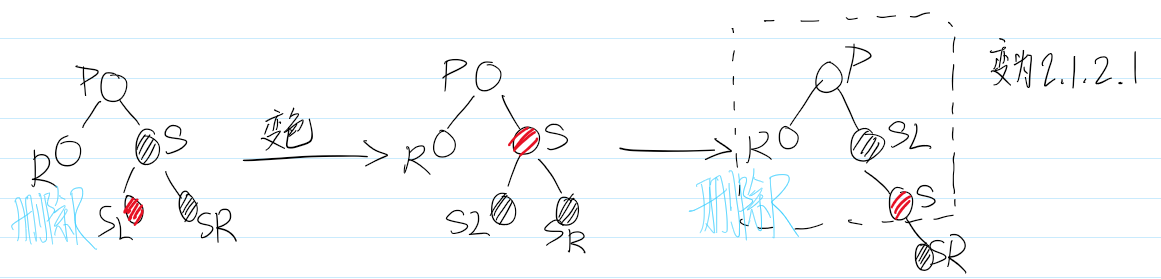 P
R
S
删除R
SL
SR
变色
P
R
S
SL
SR
P
R
SL
删除R
S
SR
变为2.1.2.1